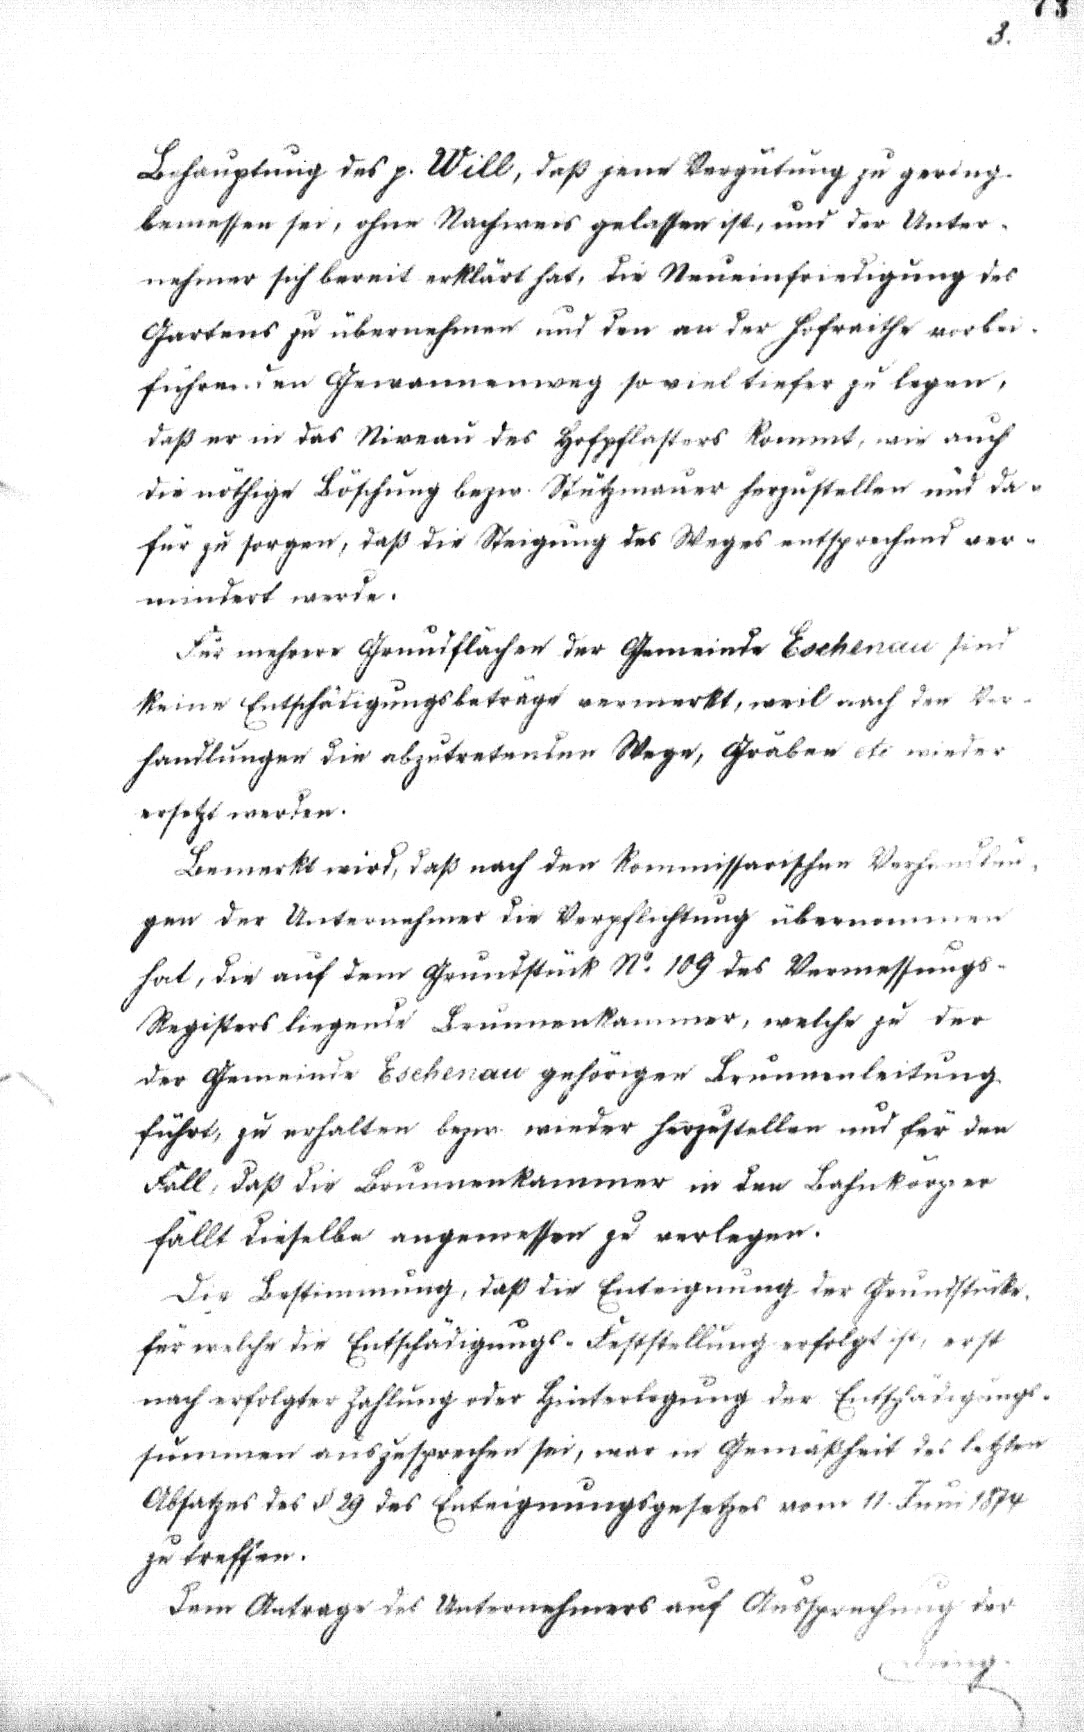 73
3.
Behauptung des p. Will, daß jene Vergütung zu gering
bemessen sei, ohne Nachweis gelassen ist, und der Unter-
nehmer sich bereit erklärt hat, die Neueinfriedigung des
Gartens zu übernehmen und den an der Hofraithe vorbei-
führenden Gewannenweg so viel tiefer zu legen,
daß er in das Niveau des Hofpflasters kommt, wie auch
die nöthige Böschung bezw. Stützmauer herzustellen und da-
für zu sorgen, daß die Steigung des Weges entsprechend ver-
mindert werde.
Für mehrere Grundflächen der Gemeinde Eschenau sind
keine Entschädigungsbeträge vermerkt, weil nach den Ver-
handlungen die abzutretenden Wege, Gräben etc wieder
ersetzt werden.
Bemerkt wird, daß nach den kommissarischen Verhandlun-
gen der Unternehmer die Verpflichtung übernommen
hat, die auf dem Grundstück No. 109 des Vermessungs-
Registers liegende Brunnenkammer, welche zu der
der Gemeinde Eschenau gehörigen Brunnenleitung
führt, zu erhalten bezw. wieder herzustellen und für den
Fall, daß die Brunnenkammer in den Bahnkörper
fällt dieselbe angemessen zu verlegen.
Die Bestimmung, daß die Enteignung der Grundstücke,
für welche die Entschädigungs-Feststellung erfolgt ist, erst
nach erfolgter Zahlung oder Hinterlegung der Entschädigungs-
summen auszusprechen sei, war in Gemäßheit des letzten
Absatzes des § 29 des Enteignungsgesetzes vom 11. Juni 1874
zu treffen.
Dem Antrage des Unternehmers auf Aussprechung der